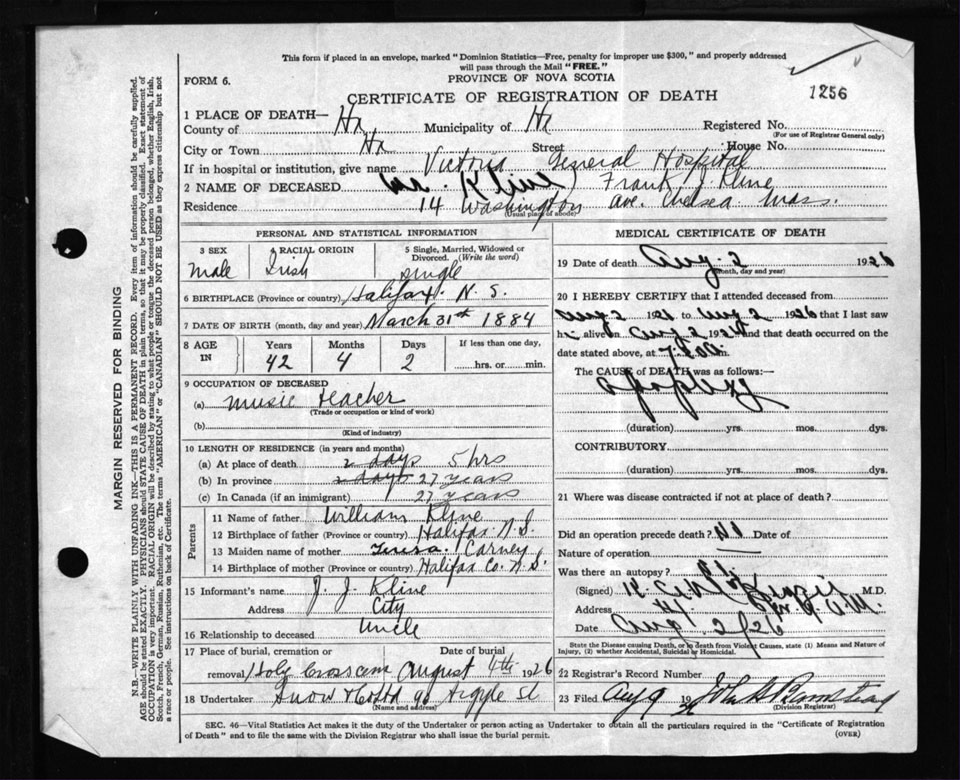 This form if placed in an envelope, marked "Dominion Statistics—Free, penalty for improper use $300," and properly addressed
will pass through the Mail "FREE."
FORM 6.
PROVINCE OF NOVA SCOTIA
1256
CERTIFICATE OF REGISTRATION OF DEATH
1 PLACE OF DEATH—
County of Hx Municipality of Hx Registered No.
(For use of Registrar General only)
City or Town Hx Street House No.
If in hospital or institution, give name Victoria General Hospital
2 NAME OF DECEASED Kline Frank J. Kline
Residence 14 Washington ave. Chelsea Mass.
(Usual place of abode)
PERSONAL AND STATISTICAL INFORMATION
3 SEX 4 RACIAL ORIGIN 5 Single, Married, Widowed or
Divorced. (Write the word)
Male Irish single
6 BIRTHPLACE (Province or country) Halifax N. S.
7 DATE OF BIRTH (month, day and year) March 31st 1884
8 AGE IN Years Months Days If less than one day,
42 4 2 hrs. or min.
9 OCCUPATION OF DECEASED
(a) Music teacher
(Trade or occupation or kind of work)
(b)
(Kind of industry)
10 LENGTH OF RESIDENCE (in years and months)
(a) At place of death 2 days 5 hrs
(b) In province 2 days 27 years
(c) In Canada (if an immigrant) 27 years
Parents
11 Name of father William Kline
12 Birthplace of father (Province or country) Halifax N.S.
13 Maiden name of mother Teresa Carney
14 Birthplace of mother (Province or country) Halifax Co. N.S.
15 Informant's name J. J. Kline
Address City
16 Relationship to deceased Uncle
17 Place of burial, cremation or Date of burial
removal Holy Cross Cem August 4th 1926
18 Undertaker Snow & Co Ltd 90 Argyle St
(Name and address)
MEDICAL CERTIFICATE OF DEATH
19 Date of death Aug. 2 1926
(month, day and year)
20 I HEREBY CERTIFY that I attended deceased from
Aug 2 1926 to Aug 2 1926 that I last saw
h alive on Aug 2 1926 and that death occurred on
date stated above, at m.
The CAUSE of DEATH was as follows:—
Apoplexy
(duration) yrs. mos. dys.
CONTRIBUTORY
(duration) yrs. mos. dys.
21 Where was disease contracted if not at place of death?
Did an operation precede death? No Date of
Nature of operation
Was there an autopsy?
(Signed) M.D.
Address
Date Aug 2/26
State the Disease causing Death, or in death from Violent Causes, state (1) Means and Nature of
Injury, (2) whether Accidental, Suicidal or Homicidal.
22 Registrar's Record Number
23 Filed Aug 9 1926
(Division Registrar)
SEC. 46—Vital Statistics Act makes it the duty of the Undertaker or person acting as Undertaker to obtain all the particulars required in the "Certificate of Registration
of Death" and to file the same with the Division Registrar who shall issue the burial permit.
(OVER)
MARGIN RESERVED FOR BINDING
N.B.—WRITE PLAINLY WITH UNFADING INK—THIS IS A PERMANENT RECORD. Every item of information should be carefully supplied.
AGE should be stated EXACTLY. PHYSICIANS should STATE CAUSE OF DEATH in plain terms, so that it may be properly classified. Exact statement of
OCCUPATION is very important. RACIAL ORIGIN will be described by stating to what people or tongue the deceased person belonged, whether English, Irish,
Scotch, French, German, Russian, Ruthenian, etc. The terms "AMERICAN" or "CANADIAN" SHOULD NOT BE USED as they express citizenship but not
a race or people. See instructions on back of Certificate.